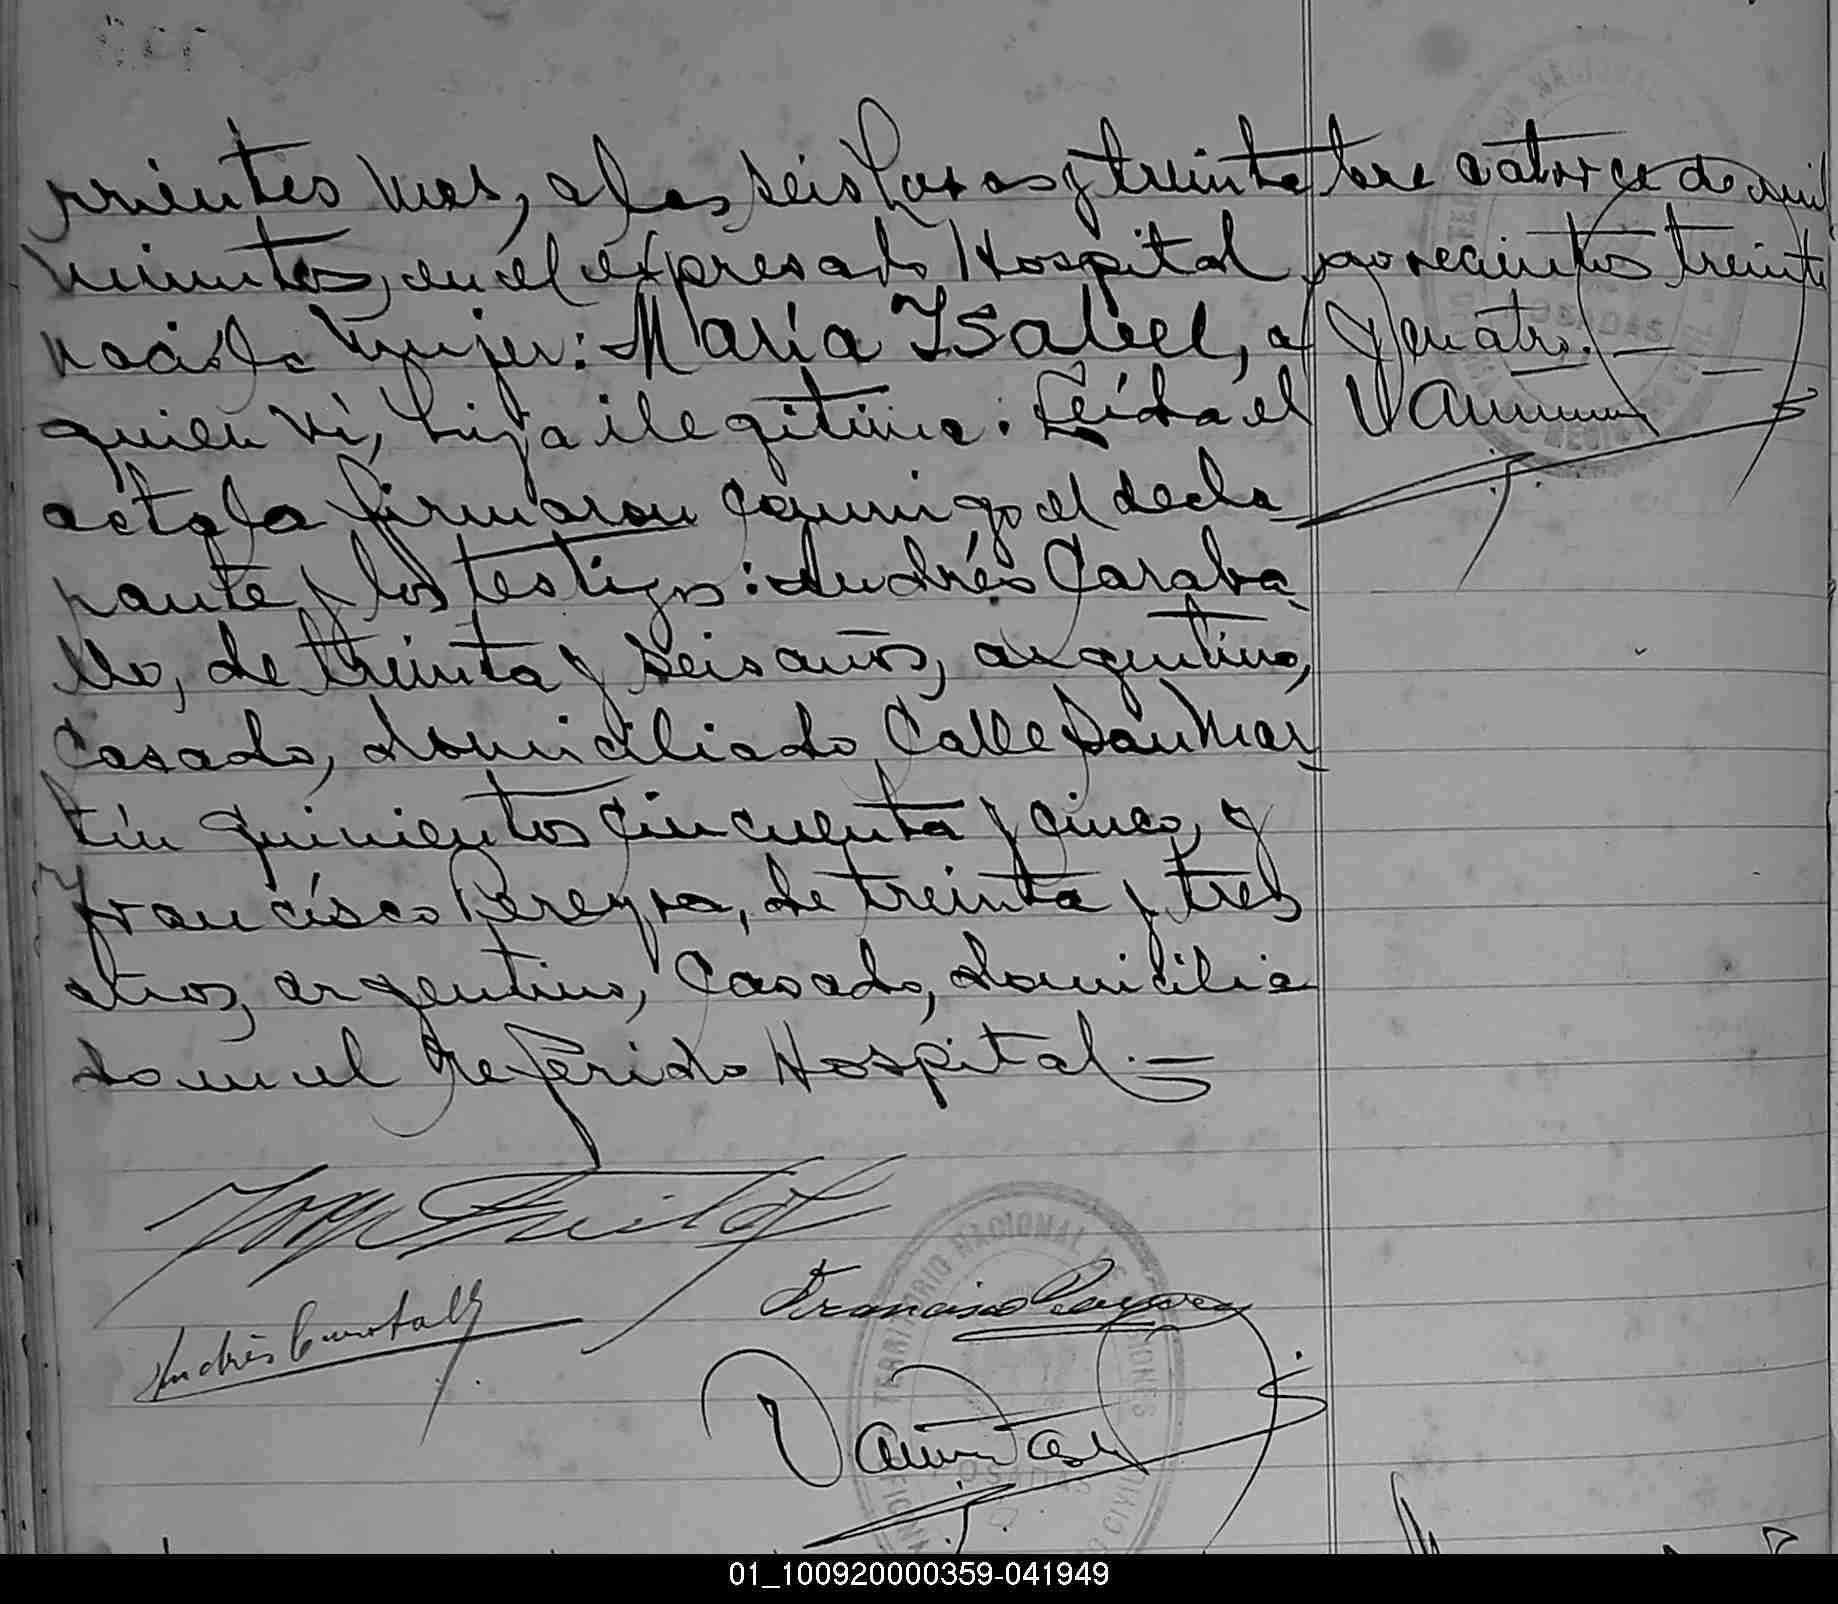 rrientes mes, a las seis horas y treinta
minutos, en el expresado Hospital
nació la mujer: María Isabel, a
quien vi, hija ilegitima. Leída el
acta la firmaron conmigo el decla
rante y los testigos: Andrés Caraba
llo, de treinta y seis años, argentino,
casado, domiciliado Calle San Mar
tín quinientos cincuenta y cinco, y
Francisco Pereyra, de treinta y tres
años, argentino, casado, domicilia
do en el referido Hospital.=
bre catorce de mil
novecientos treinta
y cuatro.
Andrés Caraballo
Francisco Pereyra
TERRITORIO NACIONAL DE MISIONES
01_100920000359-041949